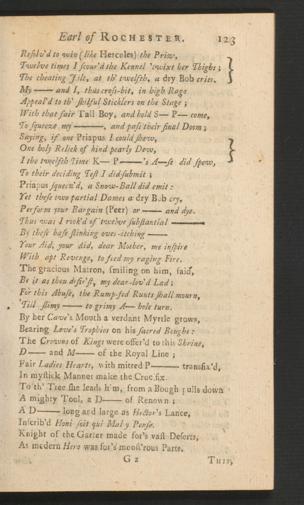 Earl of ROCHESTER. 123
Resolv'd to win (like Hercules) the Prize,
Twelve times I scour'd the Kennel 'twixt her Thighs;
The cheating Jilt, at th' twelfth, a dry Bob cries.
My —— and I, thus cross-bit, in high Rage
Appeal'd to th' skilful Sticklers on the Stage;
With that fair Tall Boy, and bold S— P— come,
To squeeze my ——, and pass their final Doom;
Saying, if one Priapus I could show,
One holy Relick of kind pearly Dew,
I the twelfth Time K— P——'s A—se did spew,
To their deciding Test I did submit;
Priapus squeez'd, a Snow-Ball did emit:
Yet these two partial Dames a dry Bob cry,
Perform your Bargain (Peer) or —— and dye.
Thus was I rook'd of twelve substantial ——
By these base stinking over-itching ——
Your Aid, your Aid, dear Mother, me inspire
With apt Revenge, to feed my raging Fire.
The gracious Matron, smiling on him, said,
Be it as thou desir'st, my dear-lov'd Lad;
For this Abuse, the Rump-fed Runts shall mourn,
'Till slimy —— to grimy A— hole turn.
By her Cave's Mouth a verdant Myrtle grows,
Bearing Love's Trophies on his sacred Boughs:
The Crowns of Kings were offer'd to this Shrine,
D—— and M—— of the Royal Line;
Fair Ladies Hearts, with mitred P—— transfix'd,
In mystick Manner make the Crucifix.
To th' Tree she leads him, from a Bough pulls down
A mighty Tool, a D—— of Renown;
A D—— long and large as Hector's Lance,
Inscrib'd Honi soit qui Mal y Pense.
Knight of the Garter made for's vast Deserts,
As modern Hero was for's monst'rous Parts.
G 2